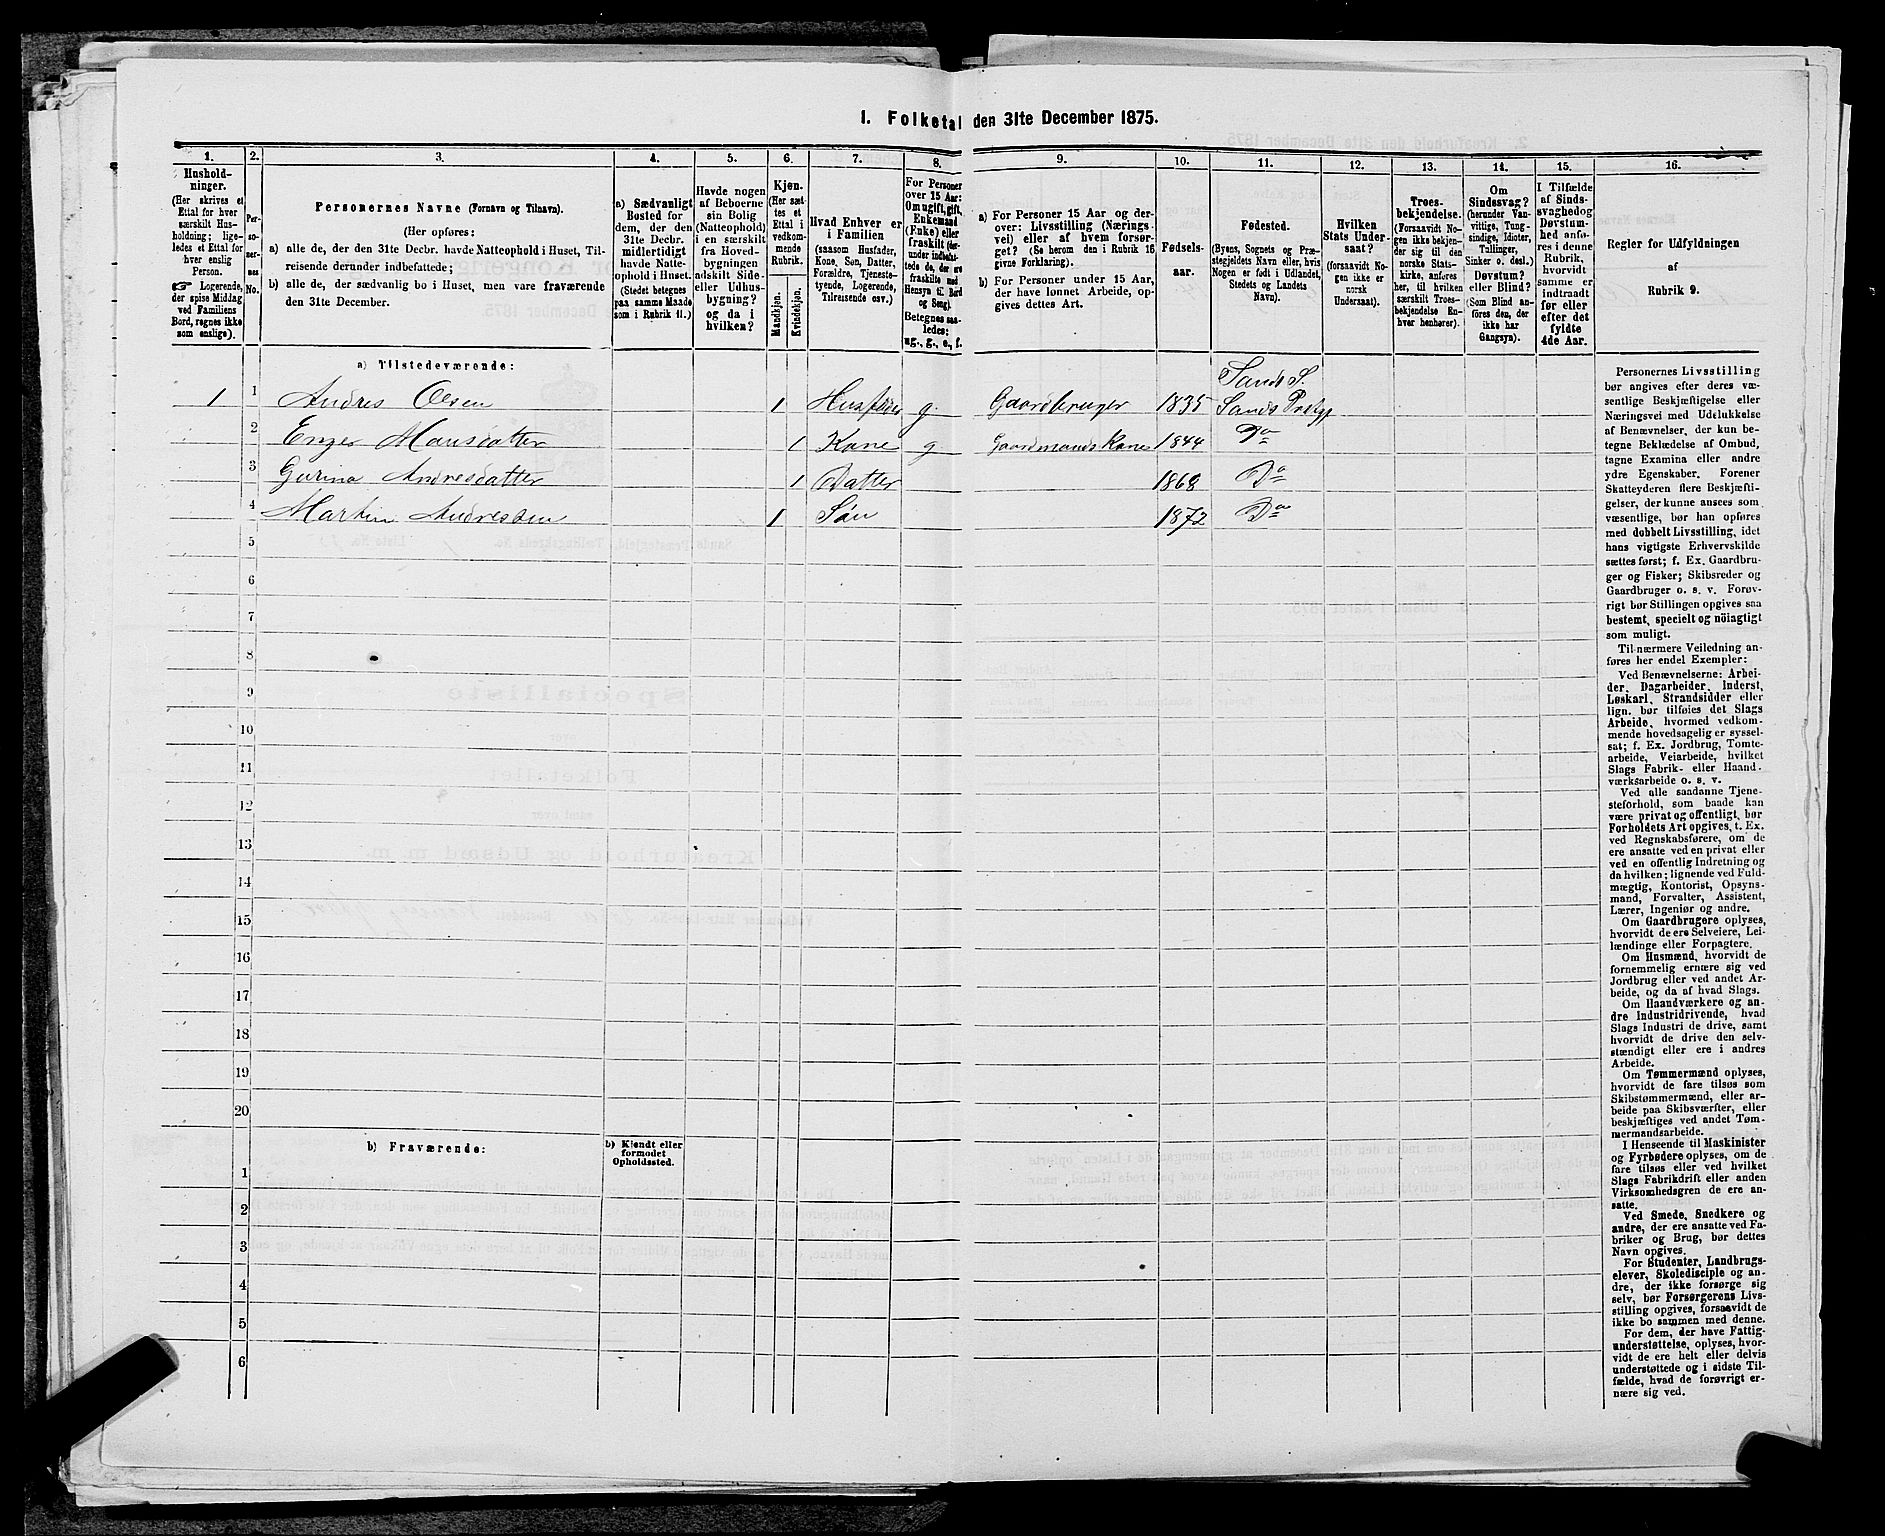 I. Folketal den 31te December 1875.
1. 2. 3. 4. 5. 6. 7. 8. 9. 10. 11. 12. 13. 14. 15. 16.
Hushold-
ninger.
(Her skrives et
Ettal for hver
særskilt Hus-
holdning; lige-
ledes et Ettal for
hver enslig
Person.
☞ Logerende,
der spise Middag
ved Familiens
Bord, regnes ikke
som enslige).
Per-
so-
ner-
nes
No.
Personernes Navne (Fornavn og Tilnavn).
(Her opføres:
a) alle de, der den 31te Decbr. havde Natteophold i Huset, Til-
reisende derunder indbefattede;
b) alle de, der sædvanlig bo i Huset, men vare fraværende
den 31te December.
a) Sædvanligt
Bosted for
dem, der den
31te Decbr.
midlertidigt
havde Natte-
ophold i Huset.
(Stedet betegnes
paa samme Maade
som i Rubrik 11.)
Havde nogen
af Beboerne
sin Bolig
(Natteophold)
i en særskilt
fra Hoved-
bygningen
adskilt Side-
eller Udhus-
bygning?
og da i
hvilken?
Kjøn.
(Her sæt-
tes et
Ettal i
vedkom-
mende
Rubrik.
Mandkjøn.
Kvindekjøn.
Hvad Enhver er
i Familien
(saasom Husfader,
Kone, Søn, Datter,
Forældre, Tjeneste-
tyende, Logerende,
Tilreisende osv.)
For Personer
over 15 Aar:
Om ugift, gift,
Enkemand
(Enke) eller
fraskilt (der-
under indbefat-
tede de, der ere
fraskilte med
Hensyn til Bord
og Seng).
Betegnes saa-
ledes:
ug., g., e., f.
a) For Personer 15 Aar og der-
over: Livsstilling (Nærings-
vei) eller af hvem forsør-
get? (Se herom den i Rubrik 16
givne Forklaring).
b) For Personer under 15 Aar,
der have lønnet Arbeide, op-
gives dettes Art.
Fødsels-
aar.
Fødested.
(Byens, Sognets og Præ-
stegjeldets Navn eller, hvis
Nogen er født i Udlandet,
Stedets og Landets
Navn).
Hvilken
Stats Under-
saat?
(forsaavidt No-
gen ikke er
norsk
Undersaat).
Troes-
bekjendelse.
(Forsaavidt No-
gen ikke bekjen-
der sig til den
norske Stats-
kirke, anføres
her, til hvilken
særskilt Troes-
bekjendelse En-
hver henhører).
Om
Sindssvag?
(herunder Van-
vittige, Tung-
sindige, Idioter,
Tullinger,
Sinker o. desl.).
Døvstum?
eller Blind?
(Som Blind an-
føres den, der
ikke har
Gangsyn).
I Tilfælde
af Sinds-
svaghed og
Døvstum-
hed anfø-
res i denne
Rubrik,
hvorvidt
samme er
indtraadt
før eller
efter det
fyldte
4de Aar.
Regler for Udfyldningen
af
Rubrik 9.
a) Tilstedeværende:
Sands S.
1 1 Andres Olsen 1 Husfader g. Gaardbruger 1835 Sands Prstgj
2 Enger Mansdatter 1 Kone g. Gaardmands Kone 1844 Do
3 Gurina Andresdatter 1 Datter 1868 Do
4 Martin Andresen 1 Søn 1872 Do
5
6
7
8
9
10
11
12
13
14
15
16
17
18
19
20
b) Fraværende:
b) Kjendt eller
formodet
Opholdssted.
1
2
3
4
5
6
Personernes Livsstilling
bør angives efter deres væ-
sentlige Beskjæftigelse eller
Næringsvei med Udelukkelse
af Benævnelser, der kun be-
tegne Beklædelse af Ombud,
tagne Examina eller andre
ydre Egenskaber. Forener
Skatteyderen flere Beskjæfti-
gelser, der kunne ansees som
væsentlige, bør han opføres
med dobbelt Livsstilling, idet
hans vigtigste Erhvervskilde
sættes først; f. Ex. Gaardbru-
ger og Fisker; Skibsreder og
Gaardbruger o. s. v. Forøv-
rigt bør Stillingen opgives saa
bestemt, specielt og nöiagtigt
som muligt.
Til nærmere Veiledning an-
føres her endel Exempler:
Ved Benævnelserne: Arbei-
der, Dagarbeider, Inderst,
Løskarl, Strandsidder eller
lign. bør tilføies det Slags
Arbeide, hvormed vedkom-
mende hovedsagelig er syssel-
sat; f. Ex. Jordbrug, Tomte-
arbeide, Veiarbeide, hvilket
Slags Fabrik- eller Haand-
værksarbeide o. s. v.
Ved alle saadanne Tjene-
steforhold, som baade kan
være privat og offentligt, bør
Forholdets Art opgives, t. Ex.
ved Regnskabsførere, om de
ere ansatte ved en privat eller
ved en offentlig Indretning og
da hvilken; lignende ved Fuld-
mægtig, Kontorist, Opsyns-
mand, Forvalter, Assistent,
Lærer, Ingeniør og andre.
Om Gaardbrugere oplyses,
hvorvidt de ere Selveiere, Lei-
lændinge eller Forpagtere.
Om Husmænd, hvorvidt de
fornemmelig ernære sig ved
Jordbrug eller ved andet Ar-
beide, og da af hvad Slags.
Om Haandværkere og an-
dre Industridrivende, hvad
Slags Industri de drive, samt
hvorvidt de drive den selv-
stændigt eller ere i andres
Arbeide.
Om Tømmermænd oplyses,
hvorvidt de fare tilsøs som
Skibstømmermænd, eller ar-
beide paa Skibsværfter, eller
beskjæftiges ved andet Tøm-
mermandsarbeide.
I Henseende til Maskinister
og Fyrbødere oplyses, om de
fare tilsøs eller ved hvilket
Slags Fabrikdrift eller anden
Virksomhedsgren de ere an-
satte.
Ved Smede, Snedkere og
andre, der ere ansatte ved Fa-
briker og Brug, bør dettes
Navn opgives.
For Studenter, Landbrugs-
elever, Skoledisciple og an-
dre, der ikke forsørge sig
selv, bør Forsørgerens Livs-
stilling opgives, forsaavidt de
ikke bo sammen med denne.
For dem, der have Fattig-
understøttelse, oplyses, hvor-
vidt de ere helt eller delvis
understøttede og i sidste Til-
fælde, hvad de forøvrigt er-
nære sig ved.